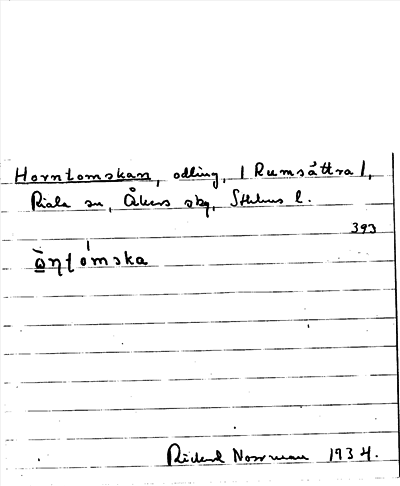 Horntomskan, odling, /Rumsättra/,
Riala sn, Åkers skg, Sthlms l.
393
ὼɳt̩ómska
Rickard Norrman 1934.